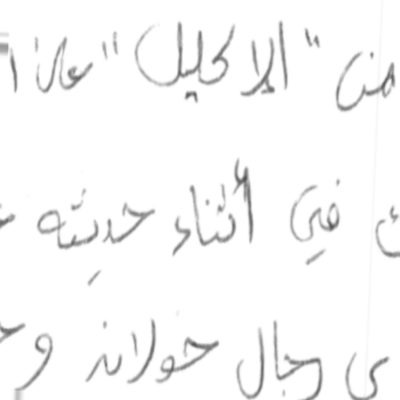 من "الإكليل" عان
في أثناء حديثه
رجال خولان و